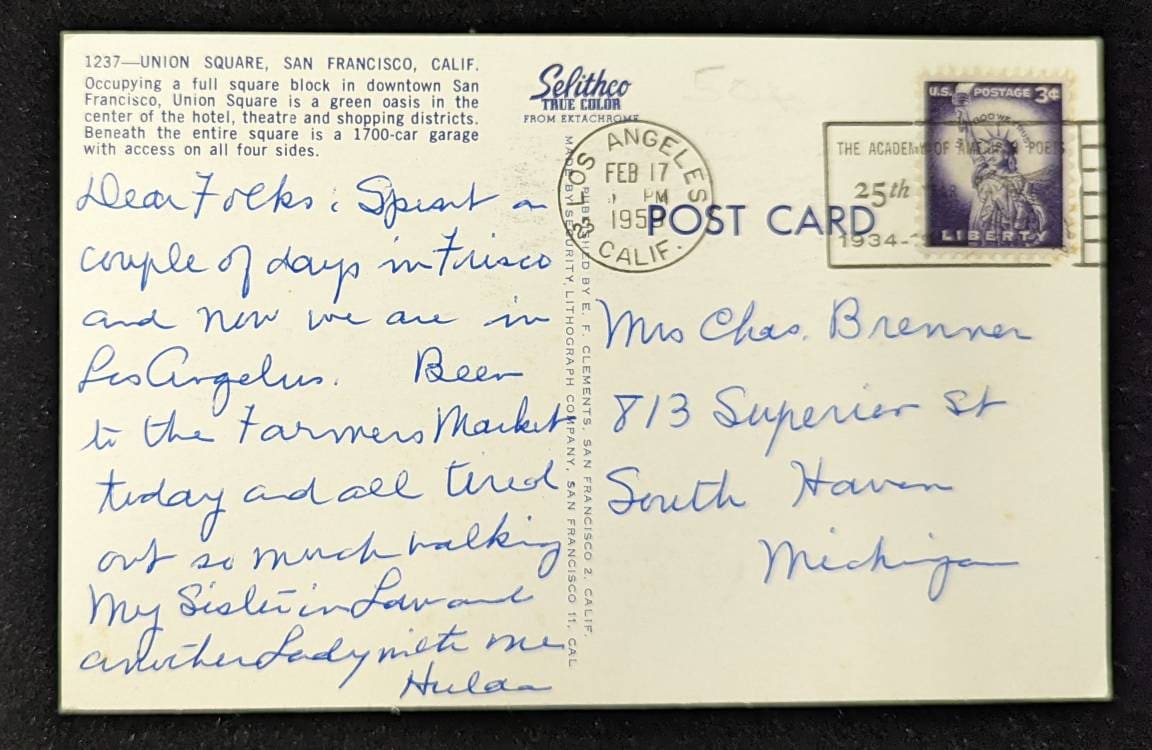 1237—UNION SQUARE, SAN FRANCISCO, CALIF.
Occupying a full square block in downtown San
Francisco, Union Square is a green oasis in the
center of the hotel, theatre and shopping districts.
Beneath the entire square is a 1700-car garage
with access on all four sides.
Selithco
TRUE COLOR
FROM EKTACHROME
LOS ANGELES
FEB 17
PM
CALIF.
THE ACADEMY OF AMERICAN POETS
25th YEAR
1934-
U.S. POSTAGE 3¢
IN GOD WE TRUST
LIBERTY
POST CARD
PUBLISHED BY E. F. CLEMENTS, SAN FRANCISCO 2, CALIF.
MADE BY SECURITY LITHOGRAPH COMPANY, SAN FRANCISCO 11, CAL.
Dear Folks: Spent a
couple of days in Frisco
and now we are in
Los Angelus. Been
to the Farmers Market
today and all tired
out so much walking
My Sister in Law and
another Lady with me
Hulda
Mrs Chas. Brenner
813 Superior St
South Haven
Michigan